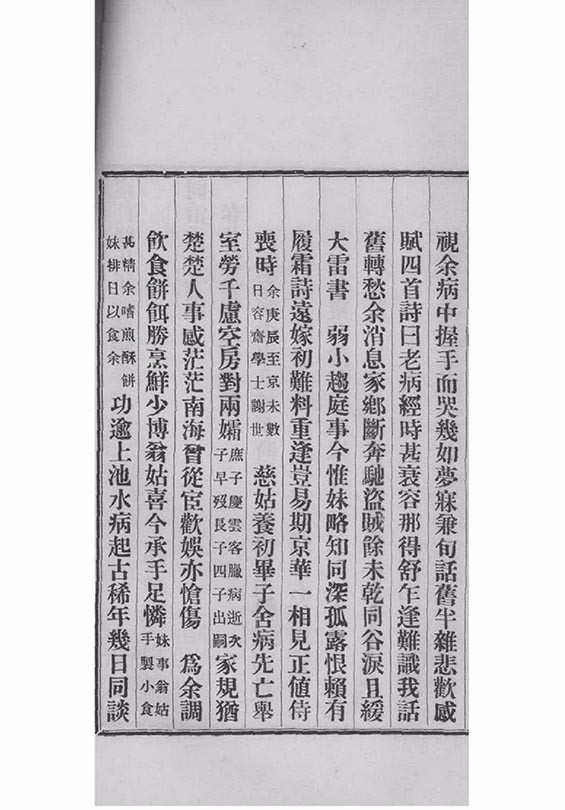 視余病中握手而哭幾如夢寐兼旬話舊半雜悲歡感
賦四首詩曰老病經時甚衰容那得舒乍逢難識我話
舊轉愁余消息家鄉斷奔馳盜賊餘未乾同谷淚且緩
大雷書　弱小趨庭事今惟妹略知同深孤露恨賴有
履霜詩遠嫁初難料重逢豈易期京華一相見正値侍
喪時余庚辰至京未數日容齋學士謝世　慈姑養初畢子舍病先亡舉
室勞千慮空房對兩孀庶子慶雲客臘病逝次子早歿長子四子出嗣家規猶
楚楚人事感茫茫南海曾從宦歡娛亦愴傷　爲余調
飮食餠餌勝烹鮮少博翁姑喜今承手足憐妹事翁姑手製小食
甚精余嗜煎酥餠妹排日以食余功逾上池水病起古稀年幾日同談